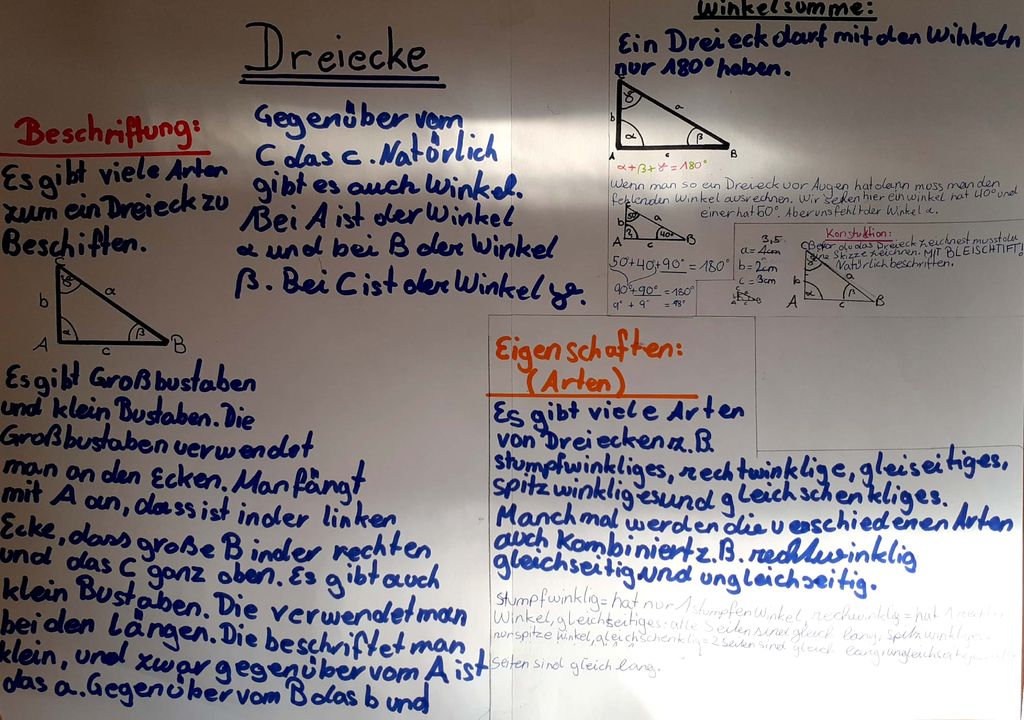 Dreiecke
Beschriftung:
Es gibt viele Arten
zum ein Dreieck zu
Beschiften.
C
b
a
γ
α
β
A
c
B
Es gibt Großbustaben
und klein Bustaben. Die
Großbustaben verwendet
man an den Ecken. Man fängt
mit A an, dass ist in der linken
Ecke, dass große B in der rechten
und das C ganz oben. Es gibt auch
klein Bustaben. Die verwendet man
bei den Längen. Die beschriftet man
klein, und zwar gegenüber vom A ist
das a. Gegenüber vom B das b und
Gegenüber vom
C das c. Natürlich
gibt es auch Winkel.
Bei A ist der Winkel
α und bei B der Winkel
β. Bei C ist der Winkel γ.
Winkelsumme:
Ein Dreieck darf mit den Winkeln
nur 180° haben.
C
b
a
γ
α
β
A
c
B
α + β + γ = 180°
Wenn man so ein Dreieck vor Augen hat dann muss man den
fehlenden Winkel ausrechnen. Wir sehen hier ein winkel hat 40° und
einer hat 50°. Aber uns fehlt der Winkel α.
b
50°
a
40°
A
c
B
50+40+90° = 180°
90°+90° = 180°
9° + 9° = 18°
Konstuktion:
Befor du das Dreieck zeichnest musst du
eine Skizze zeichnen. MIT BLEISCHTIFT!
Natürlich beschriften.
3,5
a = 4cm
b = 2cm
c = 3cm
C
b
a
γ
α
β
A
c
B
Eigenschaften:
(Arten)
Es gibt viele Arten
von Dreiecken z.B.
stumpfwinkliges, rechtwinklige, gleiseitiges,
spitzwinkliges und gleichschenkliges.
Manchmal werden die verschiedenen Arten
auch kombiniert z.B. rechtwinklig
gleichseitig und ungleichseitig.
Stumpfwinklig = hat nur 1 stumpfen Winkel, rechwinklig = hat 1
Winkel, gleichseitiges: alle Seiten sind gleich lang, spitzwinklig
nur spitze winkel, gleichschenklig = 2 seiten sind gleich lang
Seiten sind gleich lang.